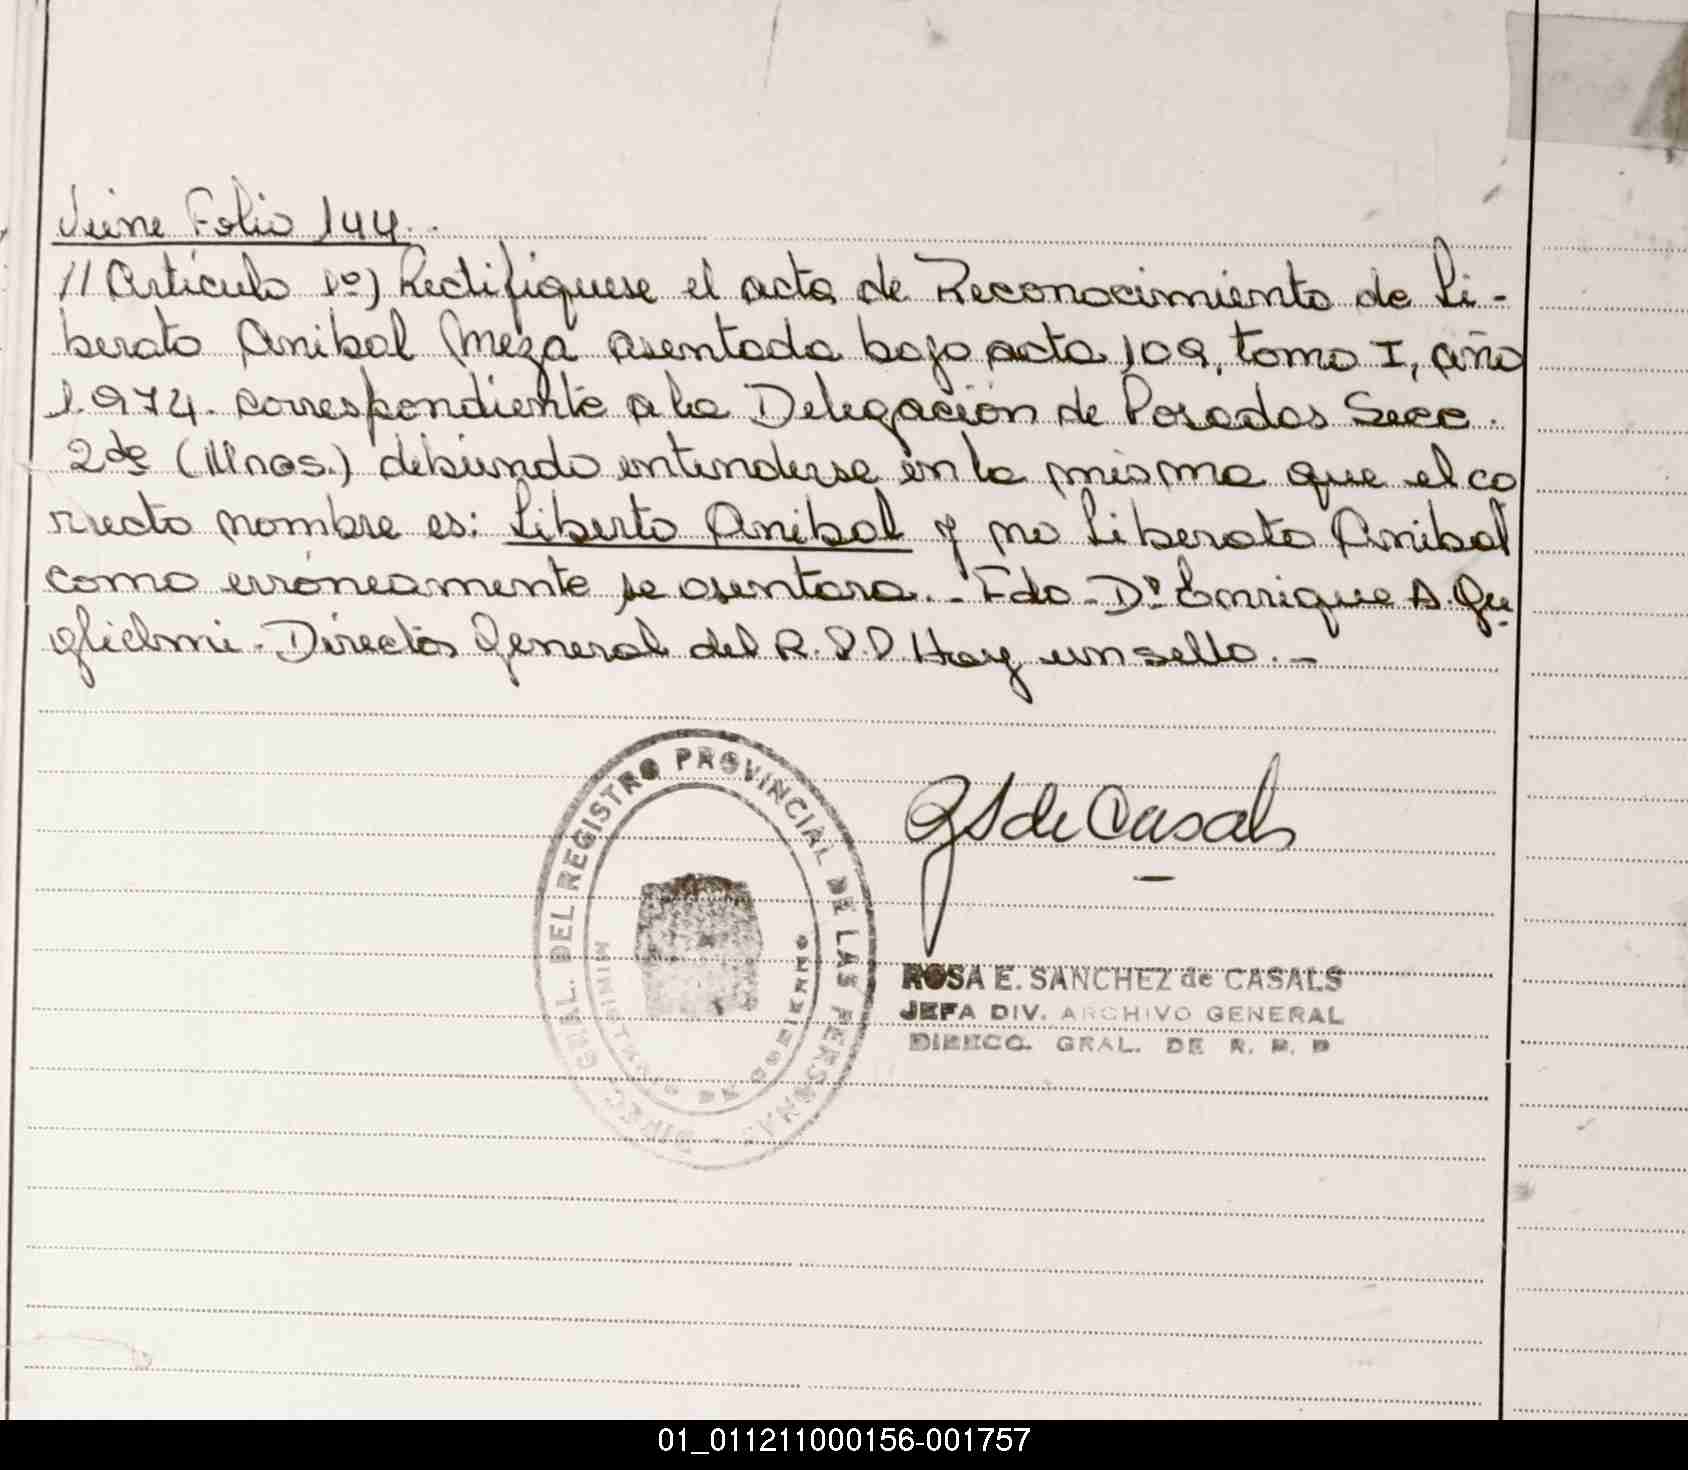 Viene Folio 144.
// Artículo 1º) Rectifiquese el acta de Reconocimiento de Li-
berato Anibal Meza asentada bajo acta 109, tomo I, año
1.974. correspondiente a la Delegación de Posadas Secc.
2da (Mnes.) debiendo entenderse en la misma que el co
rrecto nombre es: Liberto Anibal y no Liberato Anibal
como erróneamente se asentara.- Fdo - Dr Enrique A. Gu
glielmi - Director General del R.P.P. Hay un sello.-
RS de Casals
DIREC. GRAL. DEL REGISTRO PROVINCIAL DE LAS PERSONAS
MINISTERIO DE GOBIERNO
ROSA E. SANCHEZ de CASALS
JEFA DIV. ARCHIVO GENERAL
DIRECC. GRAL. DE R. P. P
01_011211000156-001757